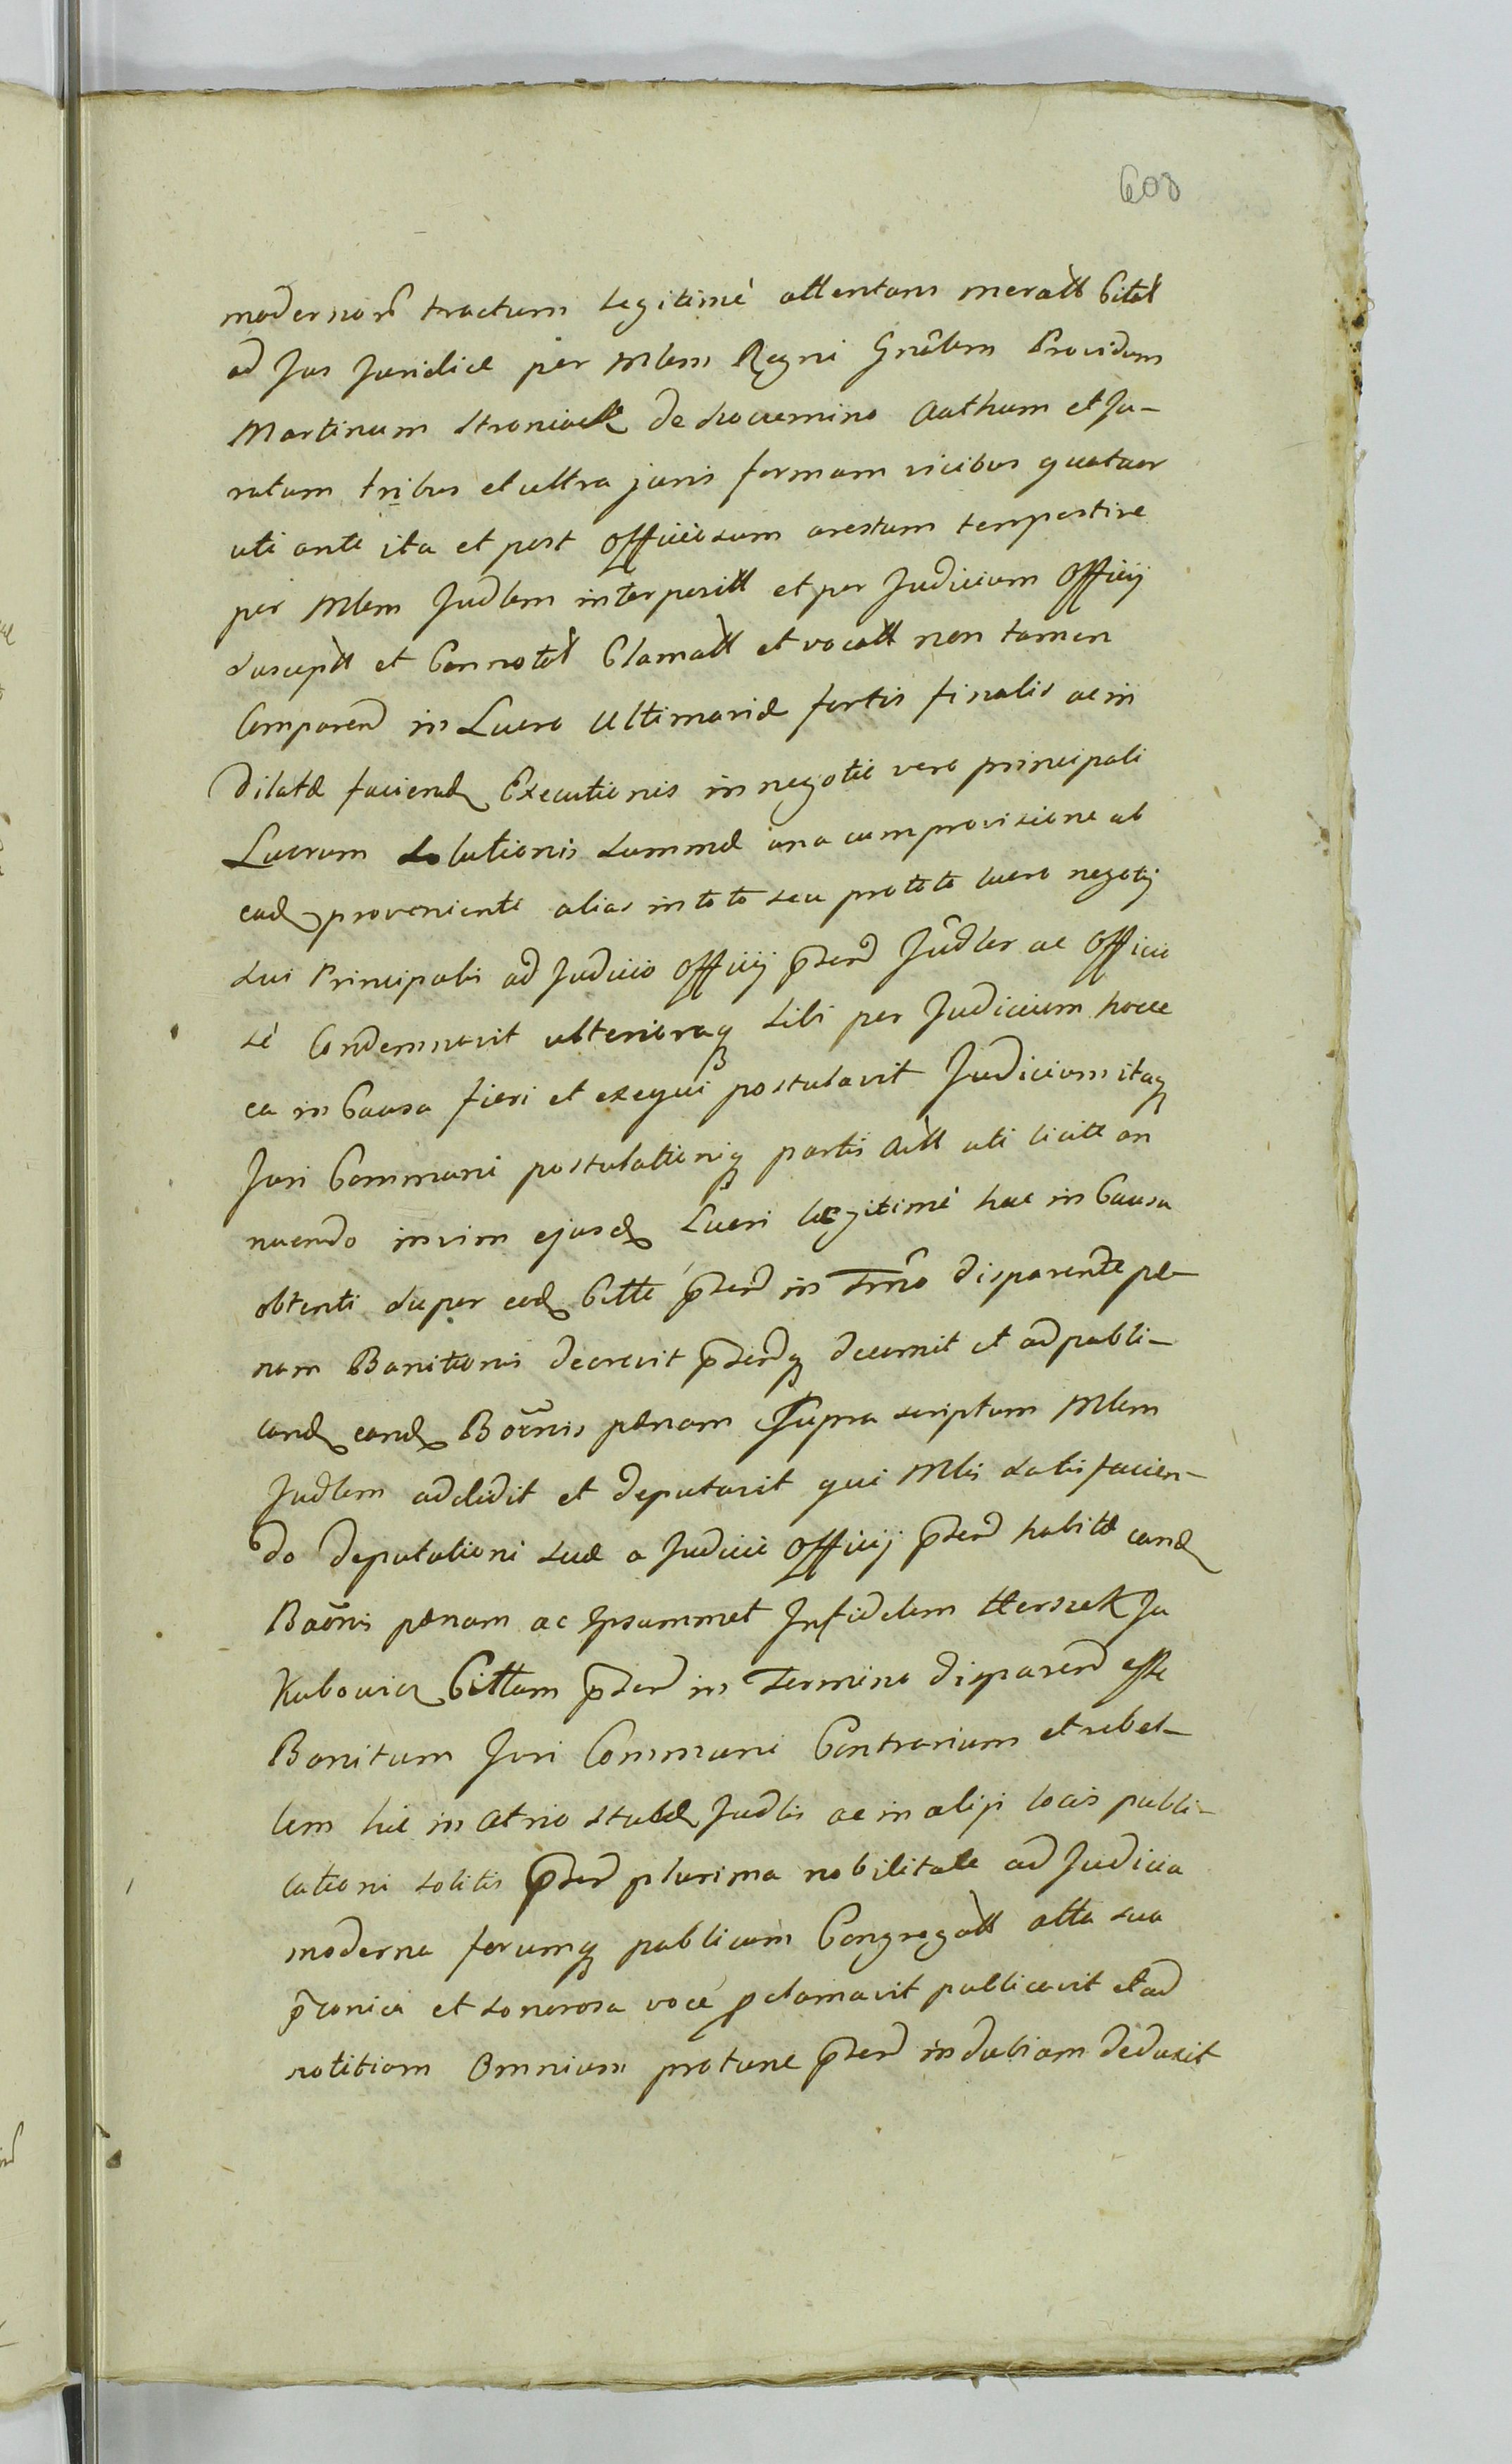 608
modernorũ tractum legitimè attentam meratt Citat
ad Jus Juridice per Mlem Regni Gnãlem Providum
Martinum Stroniack de Auth̃um et Ju-
ratum tribus et ultra juris formam vicibus quatuor
uti ante ita et post Officiosum arestum tempestive
per Mlem Judlem interpositt et per Judicium Officij
suscepitt et Connotat Clamatt et vocatt non tamen
Comparend in Lucro Ultimariæ fortis finalis ac in
Dilatæ faciendæ Executionis in negotio vero principali
Lucrum solutionis summæ una cum provisione ab
ead proveniente alias in toto seu pro toto lucro negotij
sui Principalis ad Judicio Officij p̃send Jũdler ac Officio
se Condemnavit ulterioraq sibi per Judicium hocce
ea in Causa fieri et exequi postulavit Judicium itaq
Juri Communi postulationiq partis Aitt uti licitt an
nuendo in vim ejusd Lucri legitimè hac in Causa
obtenti super eod Citto p̃send in Tm̃no disparente pæ-
nam Banitionis decrevit p̃sendq decernit et ad publi-
cand eand Bõnis pænam Supra scriptum Mlem
Judlem addidit et deputavit qui Mlis satisfacien-
do Deputationi suæ a Judicio Officij p̃send habitæ eand
Bãonis pænam ac Ipsummet Infidelem Herszek Ja
kubowicz Cittum p̃send in Termino disparend esse
Banitum Juri Communi Contrarium et rebel-
lem hic in Atrio Stubæ Judlis ac in alijs locis publi-
cationi solitis p̃send plurima nobilitate ad Judicia
moderna forumq publicum Congregatt alta sua
p̃conica et sonorosa voce pclamavit publicavit et ad
notitiam Omnium protunc p̃send indubiam deduxit